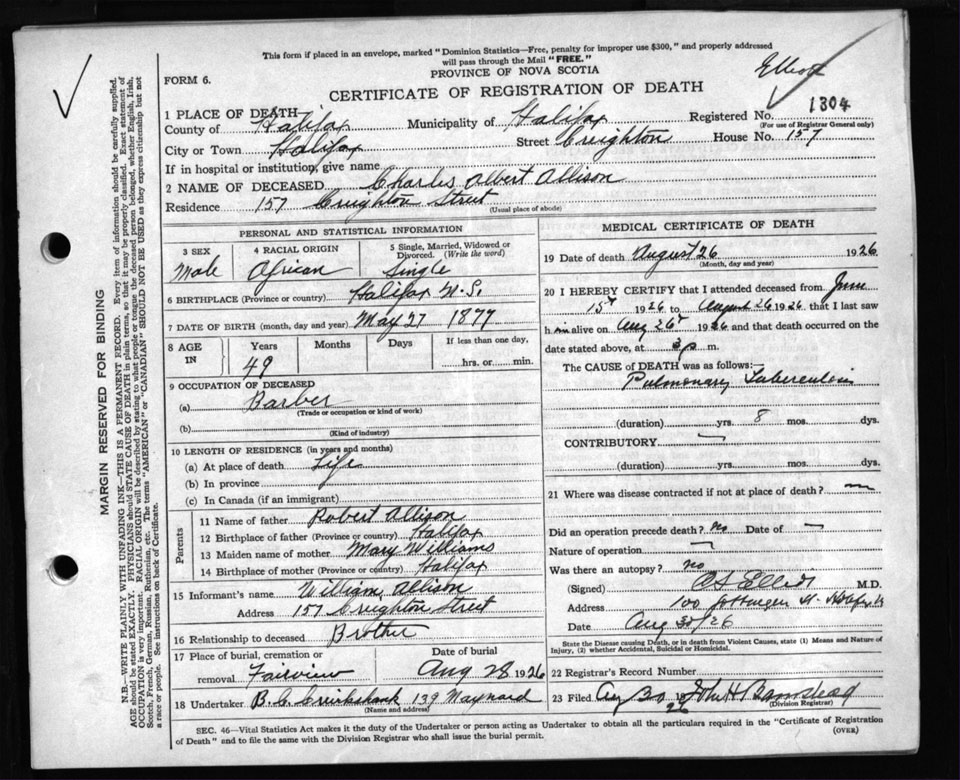 This form if placed in an envelope, marked "Dominion Statistics—Free, penalty for improper use $300," and properly addressed
will pass through the Mail "FREE."
PROVINCE OF NOVA SCOTIA
Elliot
FORM 6.
CERTIFICATE OF REGISTRATION OF DEATH
1304
1 PLACE OF DEATH
Registered No.
(For use of Registrar General only)
County of Halifax Municipality of Halifax
City or Town Halifax Street Creighton House No. 157
If in hospital or institution, give name
2 NAME OF DECEASED Charles Albert Allison
Residence 157 Creighton Street
(Usual place of abode)
PERSONAL AND STATISTICAL INFORMATION
3 SEX
Male
4 RACIAL ORIGIN
African
5 Single, Married, Widowed or
Divorced. (Write the word)
Single
6 BIRTHPLACE (Province or country) Halifax N.S.
7 DATE OF BIRTH (month, day and year) May 27 1877
8 AGE
IN
Years
49
Months
Days
If less than one day,
hrs. or min.
9 OCCUPATION OF DECEASED
(a) Barber
(Trade or occupation or kind of work)
(b)
(Kind of industry)
10 LENGTH OF RESIDENCE (in years and months)
(a) At place of death Life
(b) In province
(c) In Canada (if an immigrant)
Parents
11 Name of father Robert Allison
12 Birthplace of father (Province or country) Halifax
13 Maiden name of mother Mary Williams
14 Birthplace of mother (Province or country) Halifax
15 Informant's name William Allison
Address 157 Creighton Street
16 Relationship to deceased Brother
17 Place of burial, cremation or
removal Fairview
Date of burial
Aug 28 1926
18 Undertaker B.C. Cruikshank 139 Maynard
(Name and address)
MEDICAL CERTIFICATE OF DEATH
19 Date of death August 26 1926
(Month, day and year)
20 I HEREBY CERTIFY that I attended deceased from June
15th 1926 to August 26 1926 that I last saw
him alive on Aug 26th 1926 and that death occurred on the
date stated above, at 3 p m.
The CAUSE OF DEATH was as follows:
Pulmonary Tuberculosis
(duration) yrs. 8 mos. dys.
CONTRIBUTORY —
(duration) yrs. mos. dys.
21 Where was disease contracted if not at place of death? —
Did an operation precede death? No Date of —
Nature of operation —
Was there an autopsy? no
(Signed) Elliot M.D.
Address 100 Gottingen St. Halifax
Date Aug 30/26
State the Disease causing Death, or in death from Violent Causes, state (1) Means and Nature of
Injury, (2) whether Accidental, Suicidal or Homicidal.
22 Registrar's Record Number
23 Filed Aug 30 1926 John H Barnstead
(Division Registrar)
SEC. 46—Vital Statistics Act makes it the duty of the Undertaker or person acting as Undertaker to obtain all the particulars required in the "Certificate of Registration
of Death" and to file the same with the Division Registrar who shall issue the burial permit.
(OVER)
MARGIN RESERVED FOR BINDING
N.B.—WRITE PLAINLY, WITH UNFADING INK—THIS IS A PERMANENT RECORD. Every item of information should be carefully supplied.
AGE should be stated EXACTLY. PHYSICIANS should STATE CAUSE OF DEATH in plain terms, so that it may be properly classified. Exact statement of
OCCUPATION is very important. RACIAL ORIGIN will be described by stating to what people or tongue the deceased person belonged, whether English, Irish,
Scotch, French, German, Russian, Ruthenian, etc. The terms "AMERICAN" or "CANADIAN" SHOULD NOT BE USED as they express citizenship but not
a race or people. See instructions on back of Certificate.